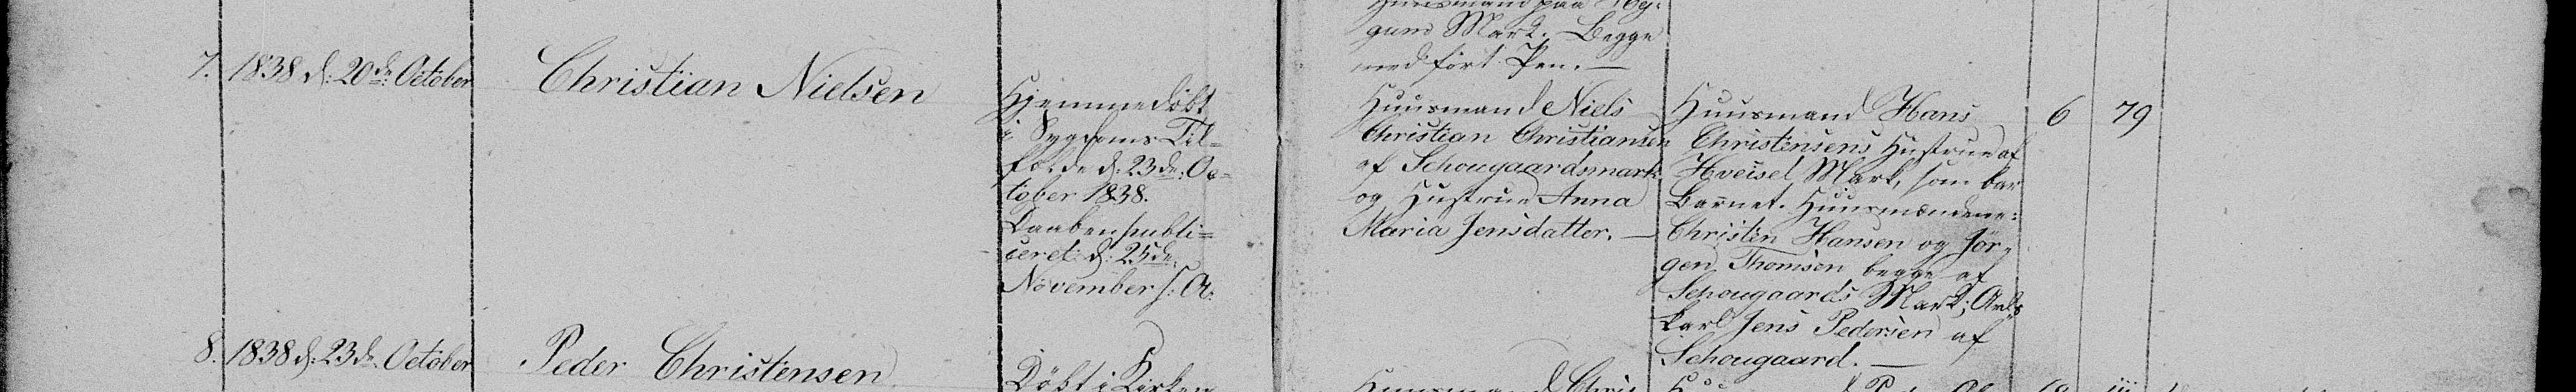 gund Mark. Begge
med ført. Pen. —
7. 1838 d: 20de October
Christian Nielsen
Hjemmedöbt
i Sygdoms Til=
fælde d: 23de Oc=
tober 1838.
Daaben publi=
ceret d: 25de
November s: A:
Huusmand Niels
Christian Christiansen
af Schougaardsmark
og Hustrue Anna
Maria Jensdatter. —
Huusmand Hans
Christensens Hustrue af
Hveisel Mark, som bar
Barnet. Huusmændene:
Christen Hansen og Jör=
gen Thomsen begge af
Schougaards Mark; Avls
karl Jens Pedersen af
Schougaard. —
6
79
8. 1838 d: 23de October
Peder Christensen
Döbt i Kirken